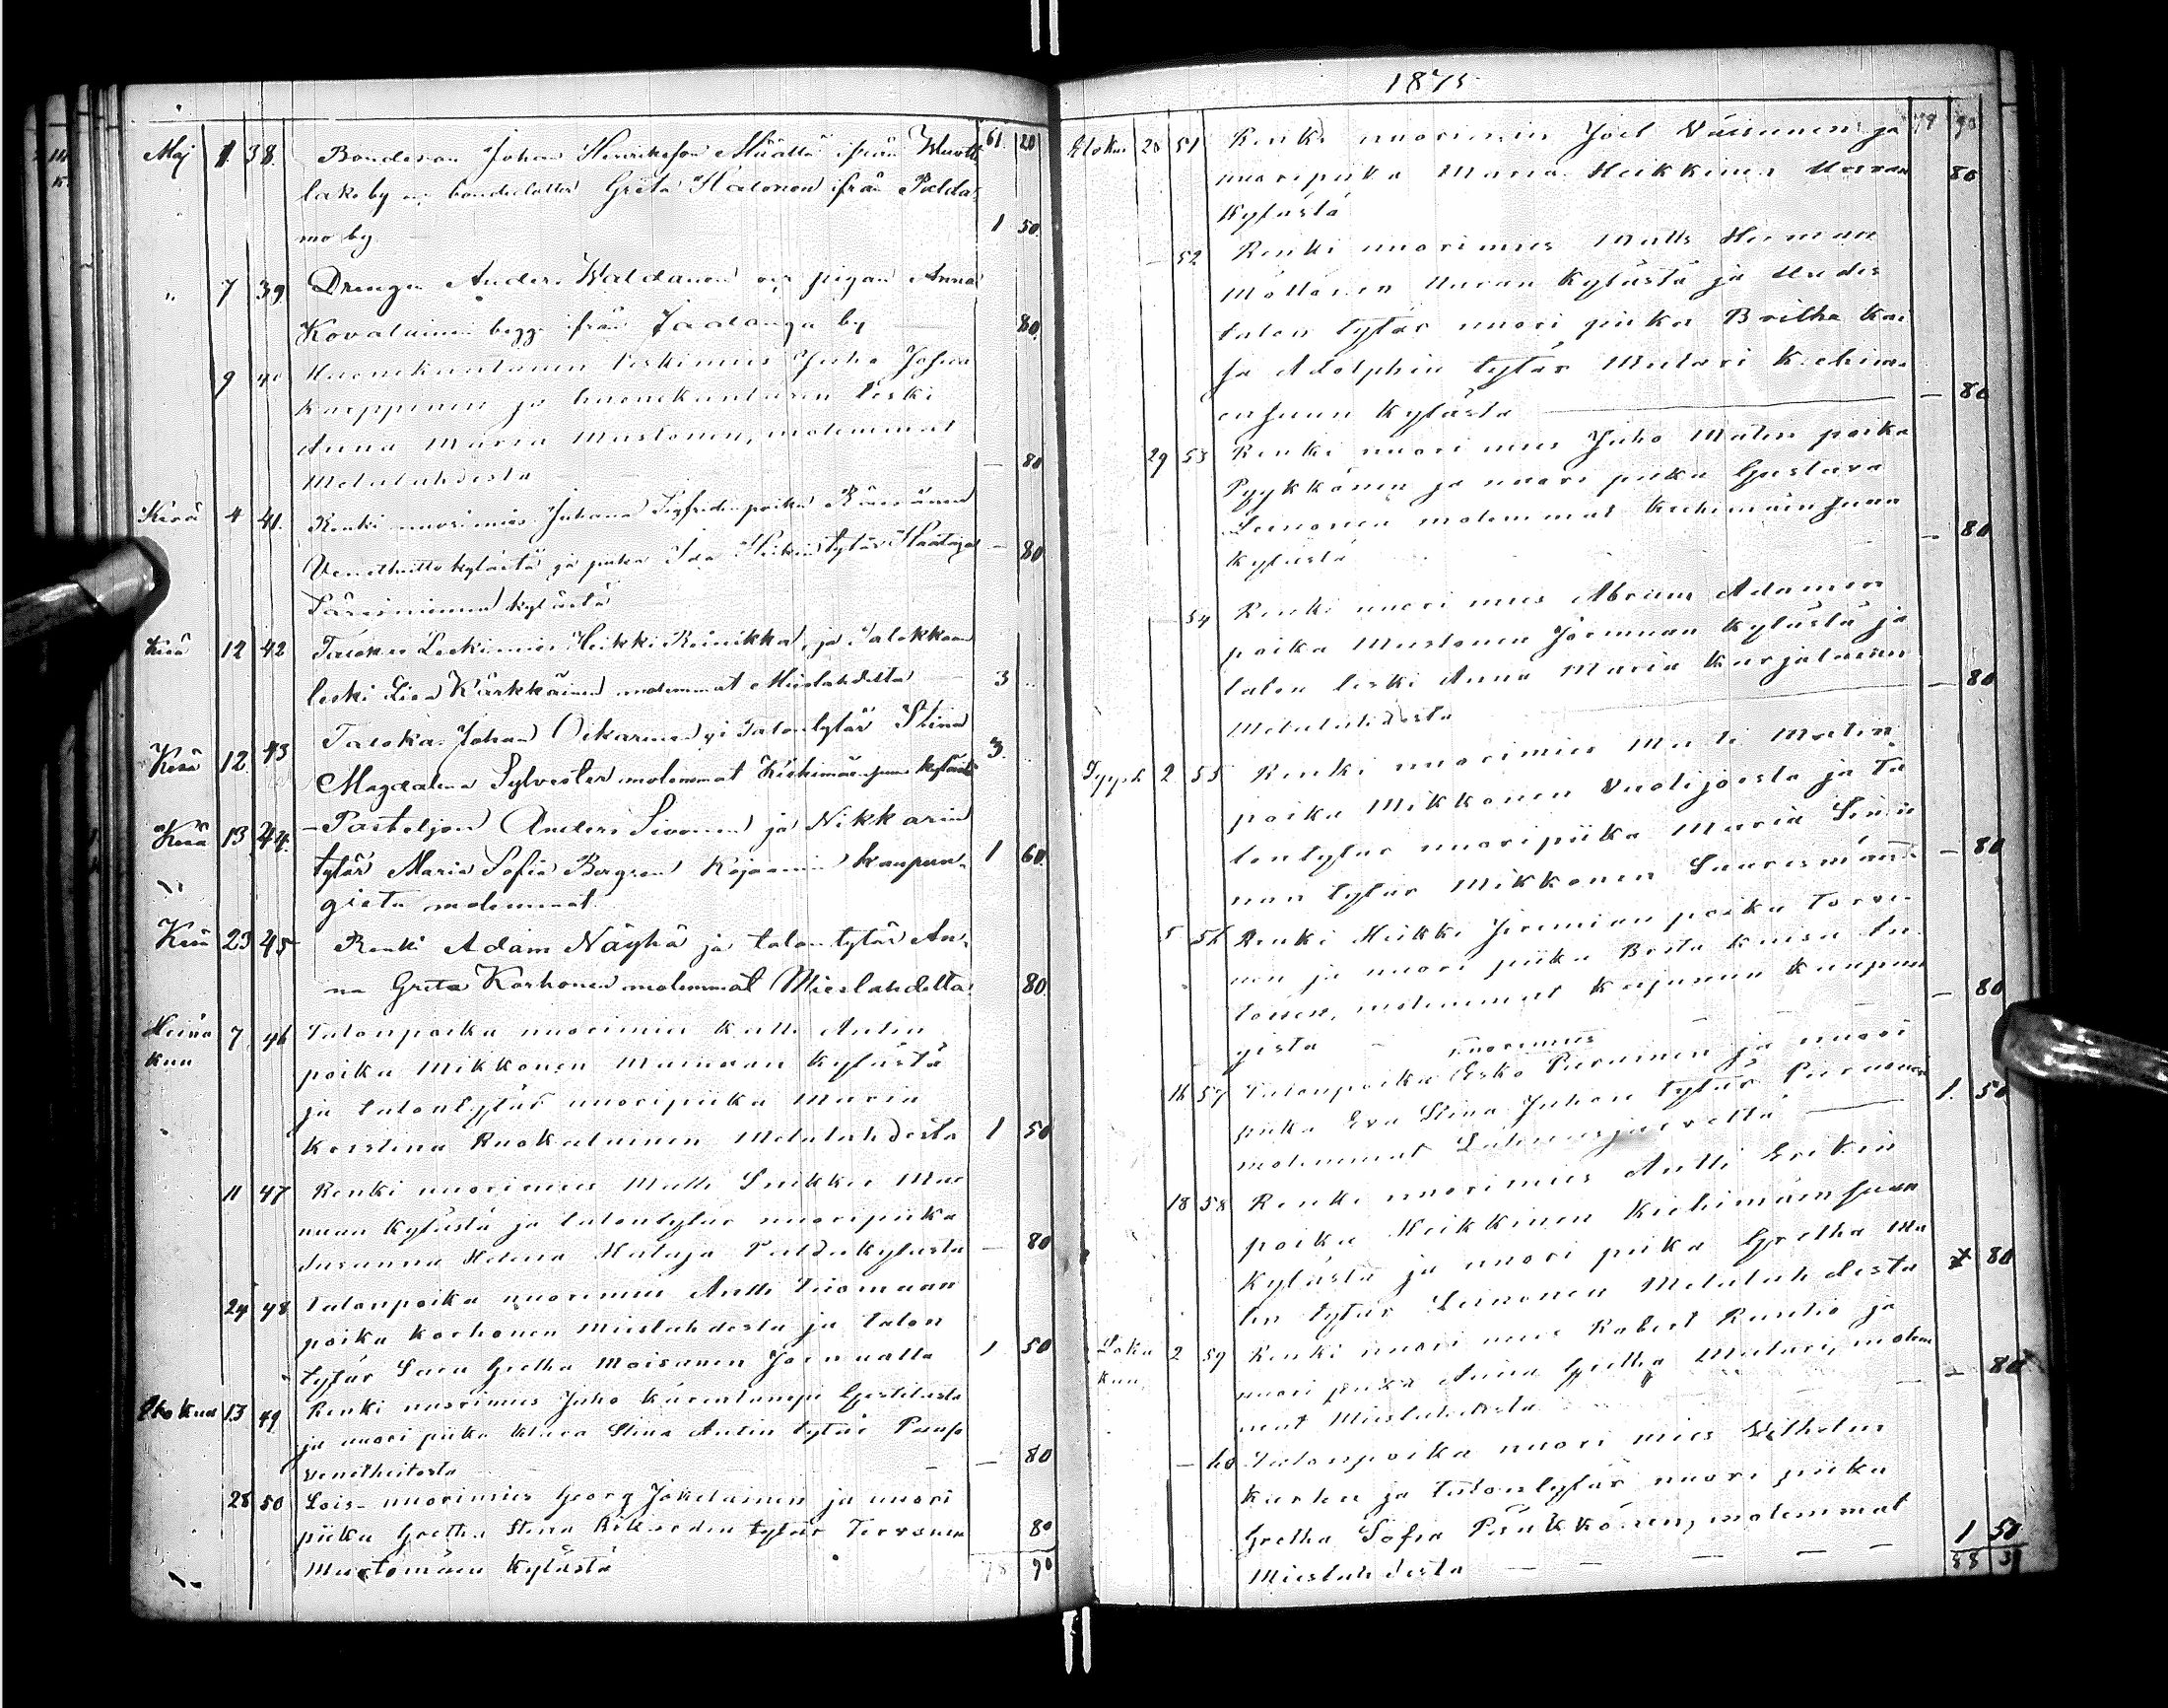 Maj 1 38 Bondeson Johan Henriksson Määttä ifrån Wuott 61. 20
lakoby o. bondedotter Greta Halonen ifrån Palda-
mo by 1 50.
" 7 39. Drengen Anders Waldanen och pigan Anna
Kovalainen begge ifrån Jaalanga by 80.
9 40 Huonekuntanen leskimies Juho Josua
Karppinen ja huonekuntanen leski
Anna Maria Mustonen, molemmat
Melalahdesta — 80
Kesä 4 41. Renki nuorimies Juhana Sigfredinpoika Räisänen
Venetheitto kylästä ja piika Ida Heikintytär Haataja — 80
Säresniemen kylästä
Kesä 12 42 Talokas Leskimies Heikki Reinikka, ja Talokkaan
leski Lisa Kärkkäinen molemmat Mieslahdelta 3 ..
Kesä 12. 43 Talokas Johan Oikarinen ja Talontytär Stina 3. ..
Magdalena Sylvester molemmat Kiehimäensuun kylästä
Kesä 13 44. Postiljon Anders Sivonen ja Nikkarin
tytär Maria Sofia Bergren Kajaanin kaupun- 1 60.
gista molemmat.
Kesä 23 45 Renki Adam Näyhä ja talontytär An-
na Greta Korhonen molemmat Mieslahdelta 80.
Heinä 7 46 Talonpoika nuorimies Kalle Antin
kuu poika Mikkonen Mainuan Kylästä
ja talontytär nuoripiika Maria
Kristina Ruokalainen Melalahdesta 1 50
11 47 Renki nuorimies Matti Suikkar Mai
nuan kylästä ja talontytär nuoripiika
Susanna Helena Mulaja Paldakylästä — 80
24 48 Talonpoika nuorimies Antti Tuomaan
poika Korhonen Mieslahdesta ja talon
tytär Sara Gretha Moisanen Jormualta 1 50
Elo kuu 13 49 Renki nuorimies Juho
ja nuori piika Klara Stina Antin tytär
Venetheitosta — 80
28 50 Lois- nuorimies Georg Jokelainen ja nuori
piika Gretha Stina Rikardin tytär Tervonen 80
Muetomäen Kylästä 78 90
1875
Elokuu 28 51 Renki nuorimies Joel Väisänen ja 78 90
nuoripiika Maria Heikkinen Uuran 80
Kylästä
— 52 Renki nuorimies Matts Herman
Möttönen Uuran Kylästä ja Uudis
talon tytär nuori piika Britha Kai
sa Adolphin tytär Mulari Kiehimä
ensuun Kylästä — 80
29 53 Renki nuori mies Juho Matin poika
Pyykkönen ja nuori piika Gustava
Leinonen molemmat Kiehimäinsuun
Kylästä — 80
54 Renki nuori mies Abram Adamin
poika Mustonen Jormuan Kylästä ja
talon leski Anna Maria Karjalainen
Melalahdesta — 80
Syysk 2 55 Renki nuorimies Matti Matin
poika Mikkonen Vuolijoesta ja Ta
lontytär nuoripiika Maria Simu
nan tytär Mikkonen — 80
5 56 Renki Heikki Jeremian poika Torvi
nen ja nuori piika Brita Kaisa
tonen, molemmat Kajaanin kaupun
gista — 80
nuorimies
16 57 Talonpoika Esko Piirainen ja nuori
piika Eva Stina Juhon tytär Piirainen 1. 50
molemmat
18 58 Renki nuorimies Antti Erkin
poika Heikkinen Kiehimäensuun
Kylästä ja nuori piika Gretha Ma
tin tytär Leinonen Melalahdesta 80
Loka 2 59 Renki nuori mies Robert Rantio ja
kuu nuori piika Anna Gretha Mulari, molem
mat Mieslahdesta — 80
— 60 Talonpoika nuori mies Wilhelm
Karhu ja Talontytär nuori piika
Gretha Sofia Pääkkönen, molemmat
Mieslahdesta — 1 50
88 30